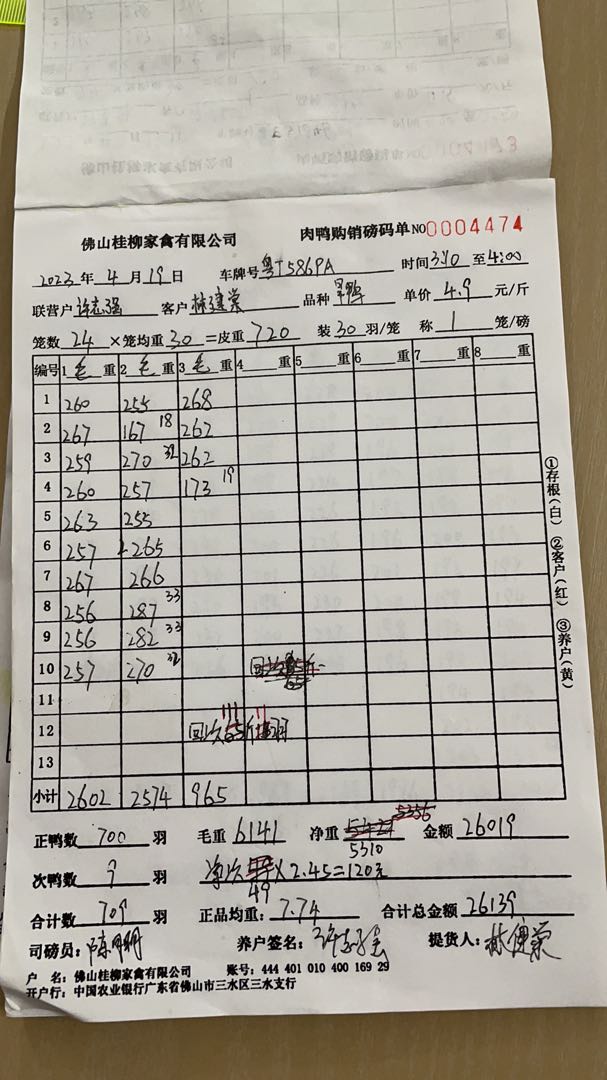 佛山桂柳家禽有限公司 肉鸭购销磅码单 NO 0004474
2023年 4月 19日 车牌号 粤T5869A 时间 3:10 至 4:00
联营户 许志强 客户 林健荣 品种 单价 4.9 元/斤
笼数 24 ×笼均重 30 =皮重 720 装 30 羽/笼 称 1 笼/磅
编号 1 毛 重 2 毛 重 3 毛 重 4 重 5 重 6 重 7 重 8 重
1 260 255 268
2 267 167 18 262
3 259 270 32 262
4 260 257 173 19
5 263 255
6 257 265
7 267 266
8 256 287 33
9 256 282 33
10 257 270 32
11
12
13
小计 2602 2574 965
①存根(白) ②客户(红) ③养户(黄)
正鸭数 700 羽 毛重 6141 净重 5356 5310 金额 26019
次鸭数 9 羽 净次 49 × 2.45=120元
合计数 709 羽 正品均重: 7.74 合计总金额 26139
司磅员: 养户签名: 许志强 提货人: 林健荣
户 名: 佛山桂柳家禽有限公司 账号: 444 401 010 400 169 29
开户行: 中国农业银行广东省佛山市三水区三水支行